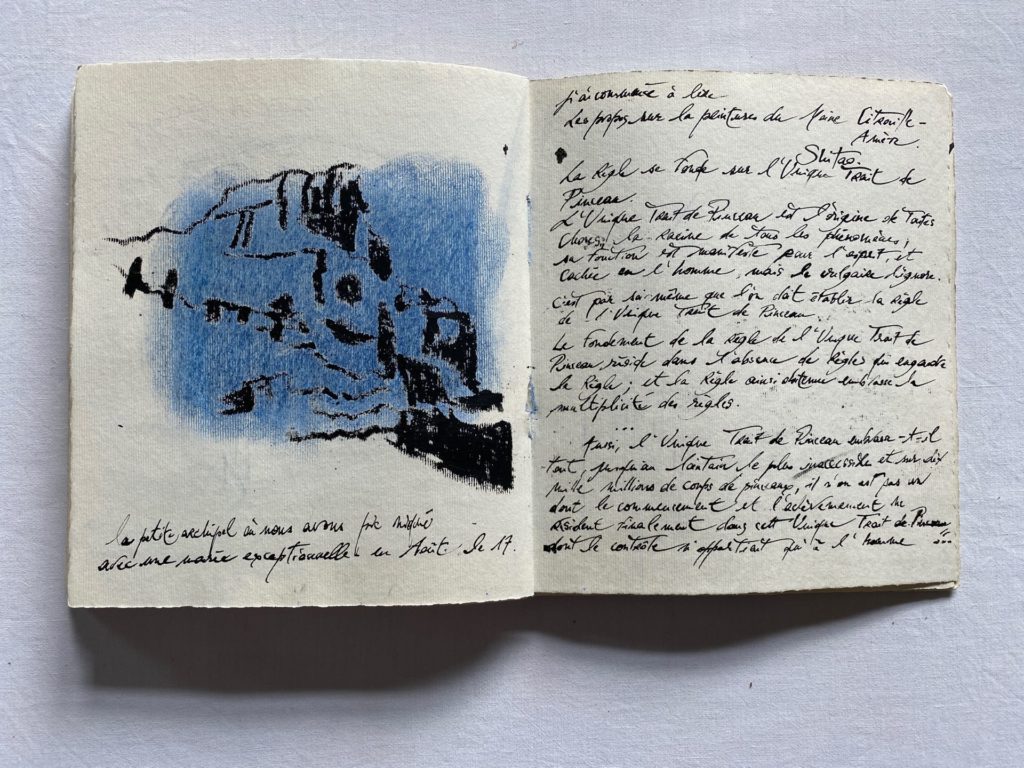 la petite archipel où nous avons pic niqué
avec une marée exceptionnelle en Août. Le 17.
j'ai commencé à lire
Les propos sur la peinture du Moine Citrouille-
Amère.
Shitao.
La Règle se fonde sur l'Unique Trait de
Pinceau.
L'Unique Trait de Pinceau est l'origine de toutes
choses, la racine de tous les phénomènes;
sa fonction est manifeste pour l'esprit, et
cachée en l'homme, mais le vulgaire l'ignore.
c'est par soi-même que l'on doit établir la Règle
de l'Unique Trait de Pinceau.
Le fondement de la Règle de l'Unique Trait de
Pinceau réside dans l'absence de Règles qui engendre
la Règle; et la Règle ainsi obtenue embrasse la
multiplicité des règles.
...
Ainsi, l'Unique Trait de Pinceau embrasse-t-il
tout, jusqu'au lointain le plus inaccessible et sur dix
mille millions de coups de pinceaux, il n'en est pas un
dont le commencement et l'achèvement ne
résident finalement dans cet Unique Trait de Pinceau
dont le contrôle n'appartient qu'à l'homme ...